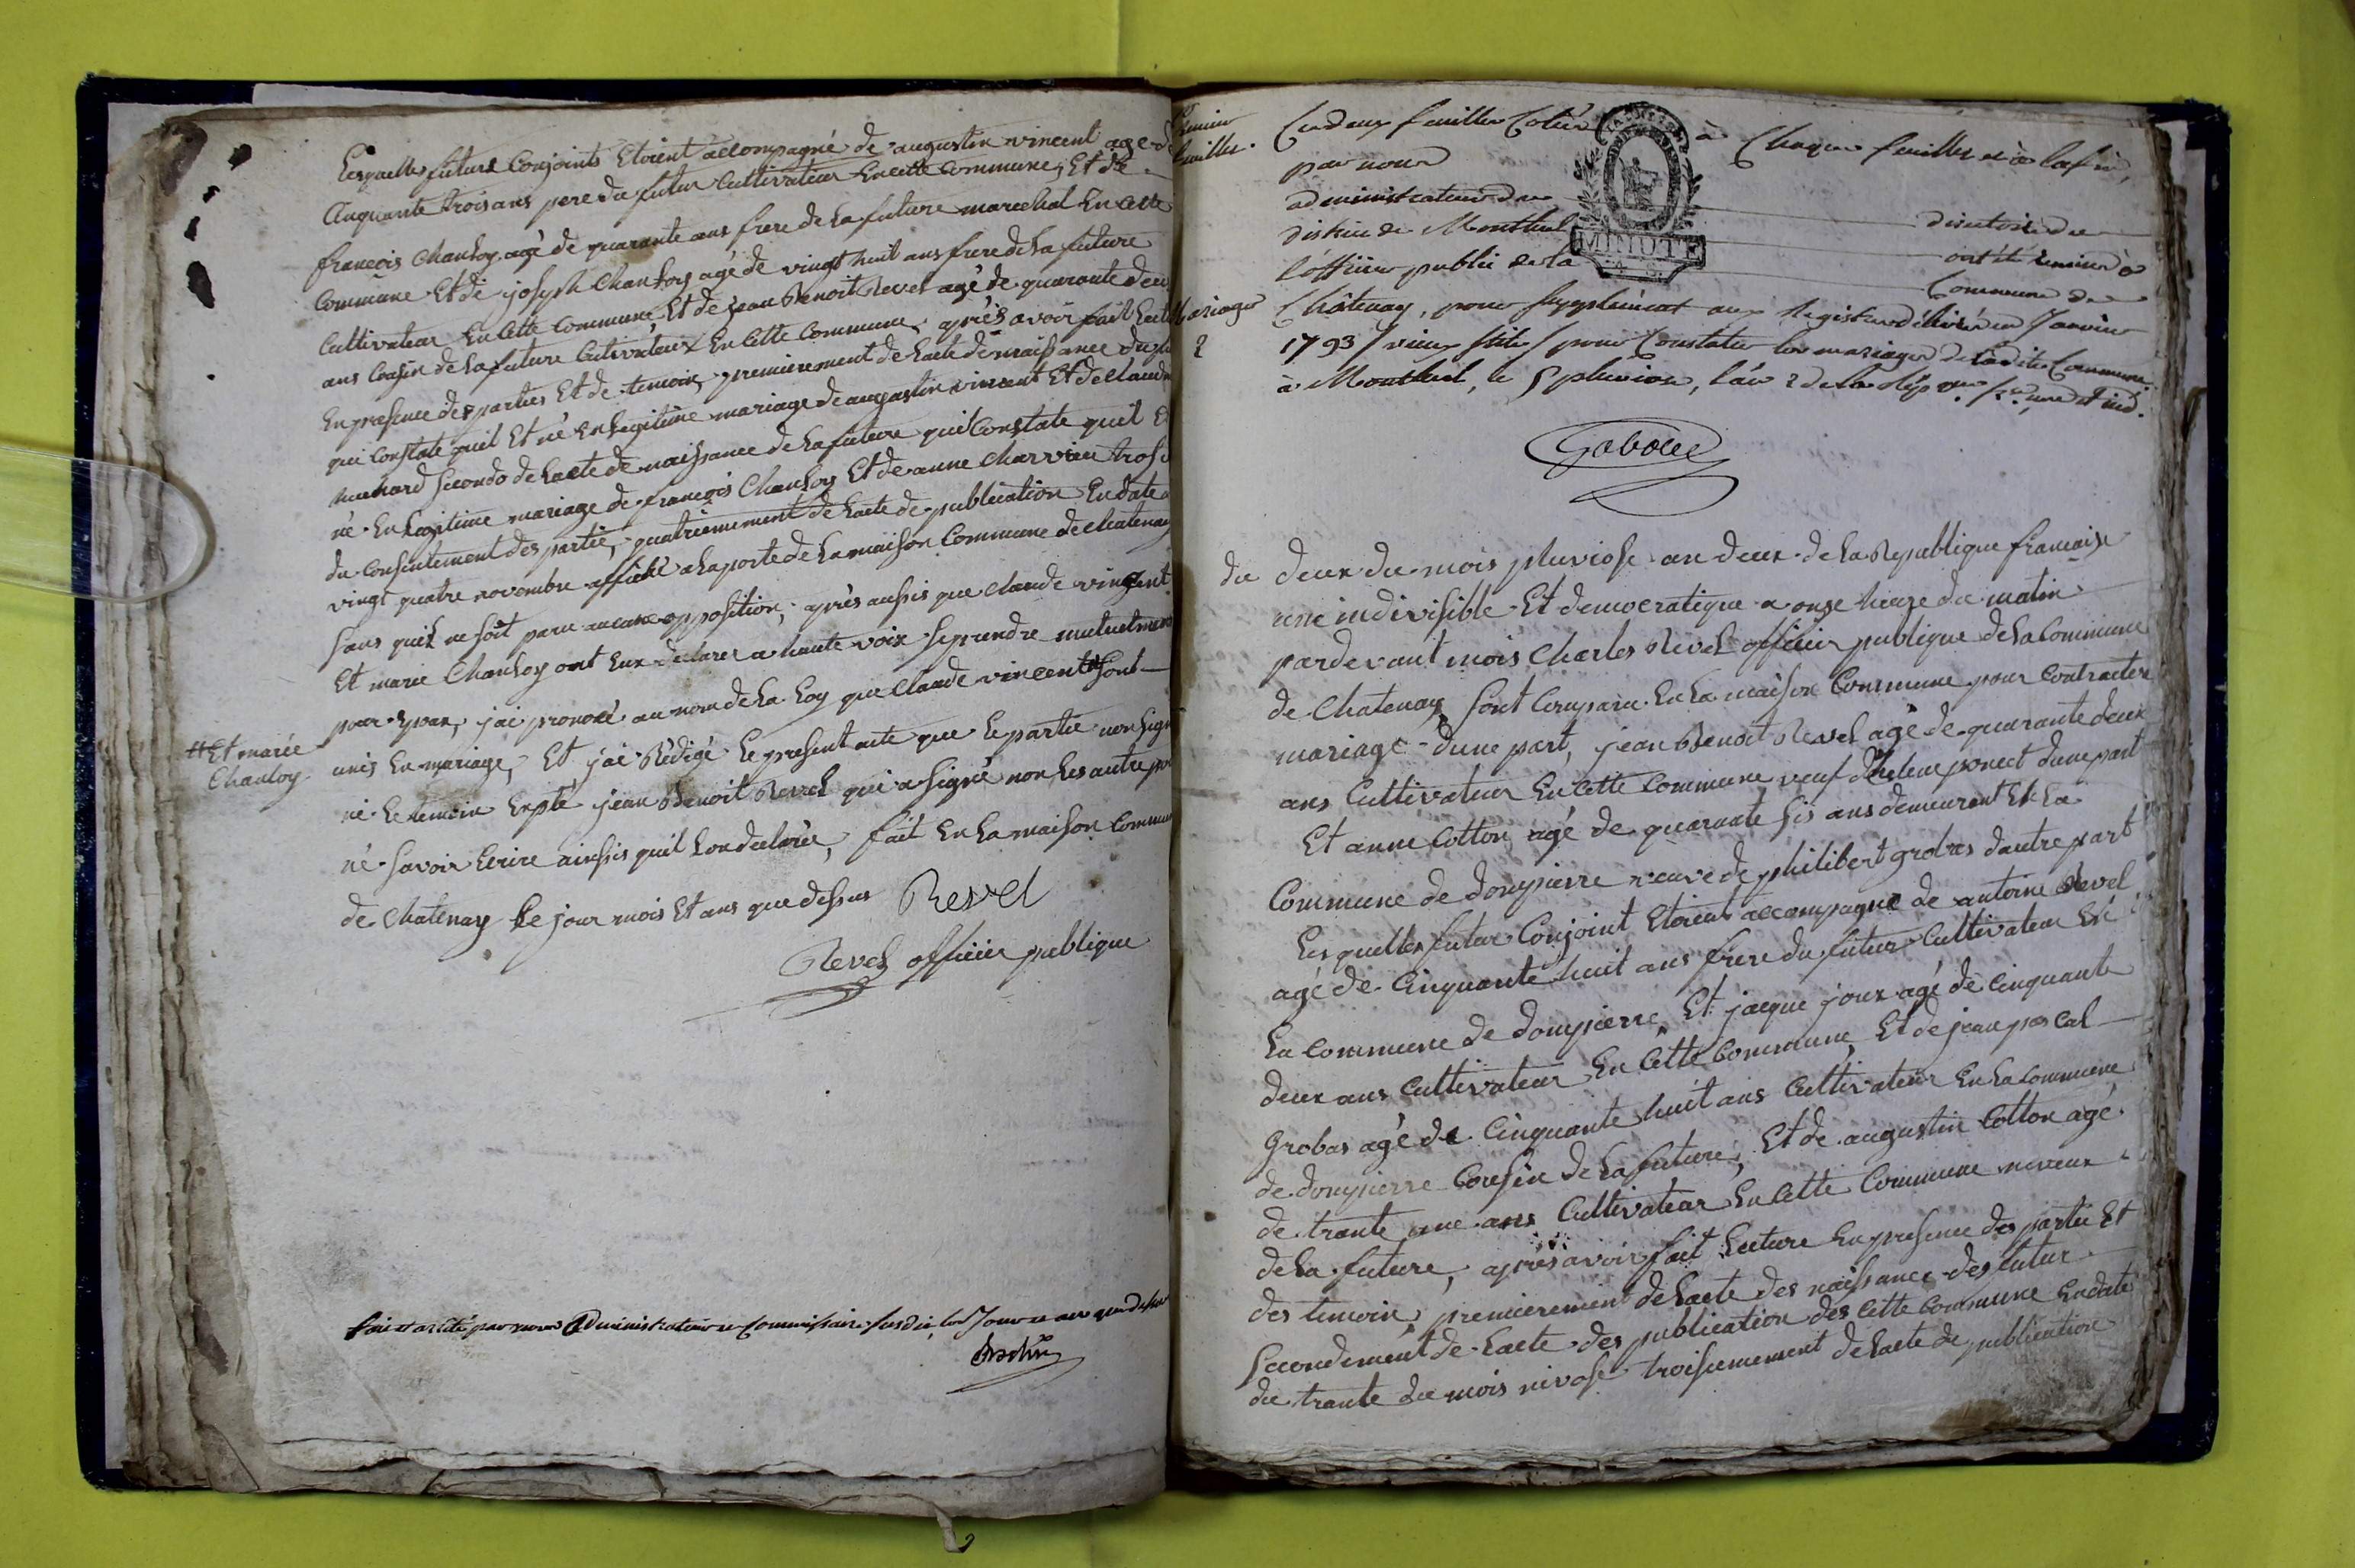 Lesquelles futurs Conjoints Etoient accompagné de augustin vincent agé de
Cinquante trois ans pere du futur Cultivateur En cette Commune, Et de
francois Chanloy agé de quarante ans frere de La future marechal En Cette
Commune Et de joseph Chanloy agé de vingt huit ans frere de La future
Cultivateur En Cette Commune Et de jean Benoit Revel agé de quarante deux
ans Cousin de La future Cultivateur En Cette Commune, après avoir fait Lecture
En presence des parties Et de temoin, premierement de Lacte de naissance du
qui Constate quil Et né En Legitime mariage de augustin vincent Et de Claudine
michard Secondo de Lacte de naissance de La future qui Constate quil Et
né En Legitime mariage de francois Chanloy Et de anne Charvieu
du Consentement des partie, quatriemement de Lacte de publication En date
vingt quatre novembre affiché a La porte de La maison Commune de Chatenay
Sans quil ne soit paru aucune opposition, après aussis que Claude vincent
Et marie Chanloy ont Eux declarer a haute voix Se prendre mutuelment
pour Epoux, jai prononcé au nom de La Loy que Claude vincent # Sont
#Et marie
Chanloy
unis En mariage, Et jai Rédigé Le present acte que Le partie non Signé
ni Le temoin Exepté jean Benoit Revel qui a Signé non Les autre pour
né Savoir Ecrire ainssis quil Lon declarée, fait En La maison Commune
de Chatenay Le jour mois Et ans que dessus Revel
Revel officier publique
par nous Administrateur Commissaire Susdit, les Jour et an que dessus
Premier
feuillet.
Ces deux feuilles Cotées à Chaque feuillet et à la fin,
par nous
administrateur du directoire du
district de Montluel ont été Remises à
l'officier public de la Commune de
Mariages
Châtenay, pour Supplément aux Registres délivrés en Janvier
2
1793 / vieux stile / pour Constater les mariages de Ladite Commune.
à Montluel, le 5 pluviose, l'an 2 de la Rép. une et ind.
du deux du mois pluviose an deux de La Republique francaise
une indivisible Et democratique a onze heure du matin
pardevant mois Charles Revel officier publique de La Commune
de Chatenay Sont Comparu En La maison Commune pour Contracter
mariage dune part, jean Benoit Revel agé de quarante deux
ans Cultivateur En Cette Commune veuf dune part
Et anne Cotton agé de quarante Sis ans demeurant En La
Commune de dompierre veuve de philibert grobas dautre part
Lesquelles futur Conjoint Etoient accompagné de antoine Revel
agé de Cinquante huit ans frere du futur Cultivateur En
La Commune de dompierre, Et jacque joux agé de Cinquante
deux ans Cultivateur En Cette Commune, Et de jean pascal
Grobas agé de Cinquante huit ans Cultivateur En La Commune
de dompierre Cousin de La future, Et de augustin Cotton agé
de trante une ans Cultivateur En Cette Commune neveux
de La future, après avoir fait Lecture En presence des partie Et
des temoin, premierement de Lacte des naissance des futur
Secondement de Lacte des publication des Cette Commune En date
du trante du mois nivose troisiemement de Lacte de publication